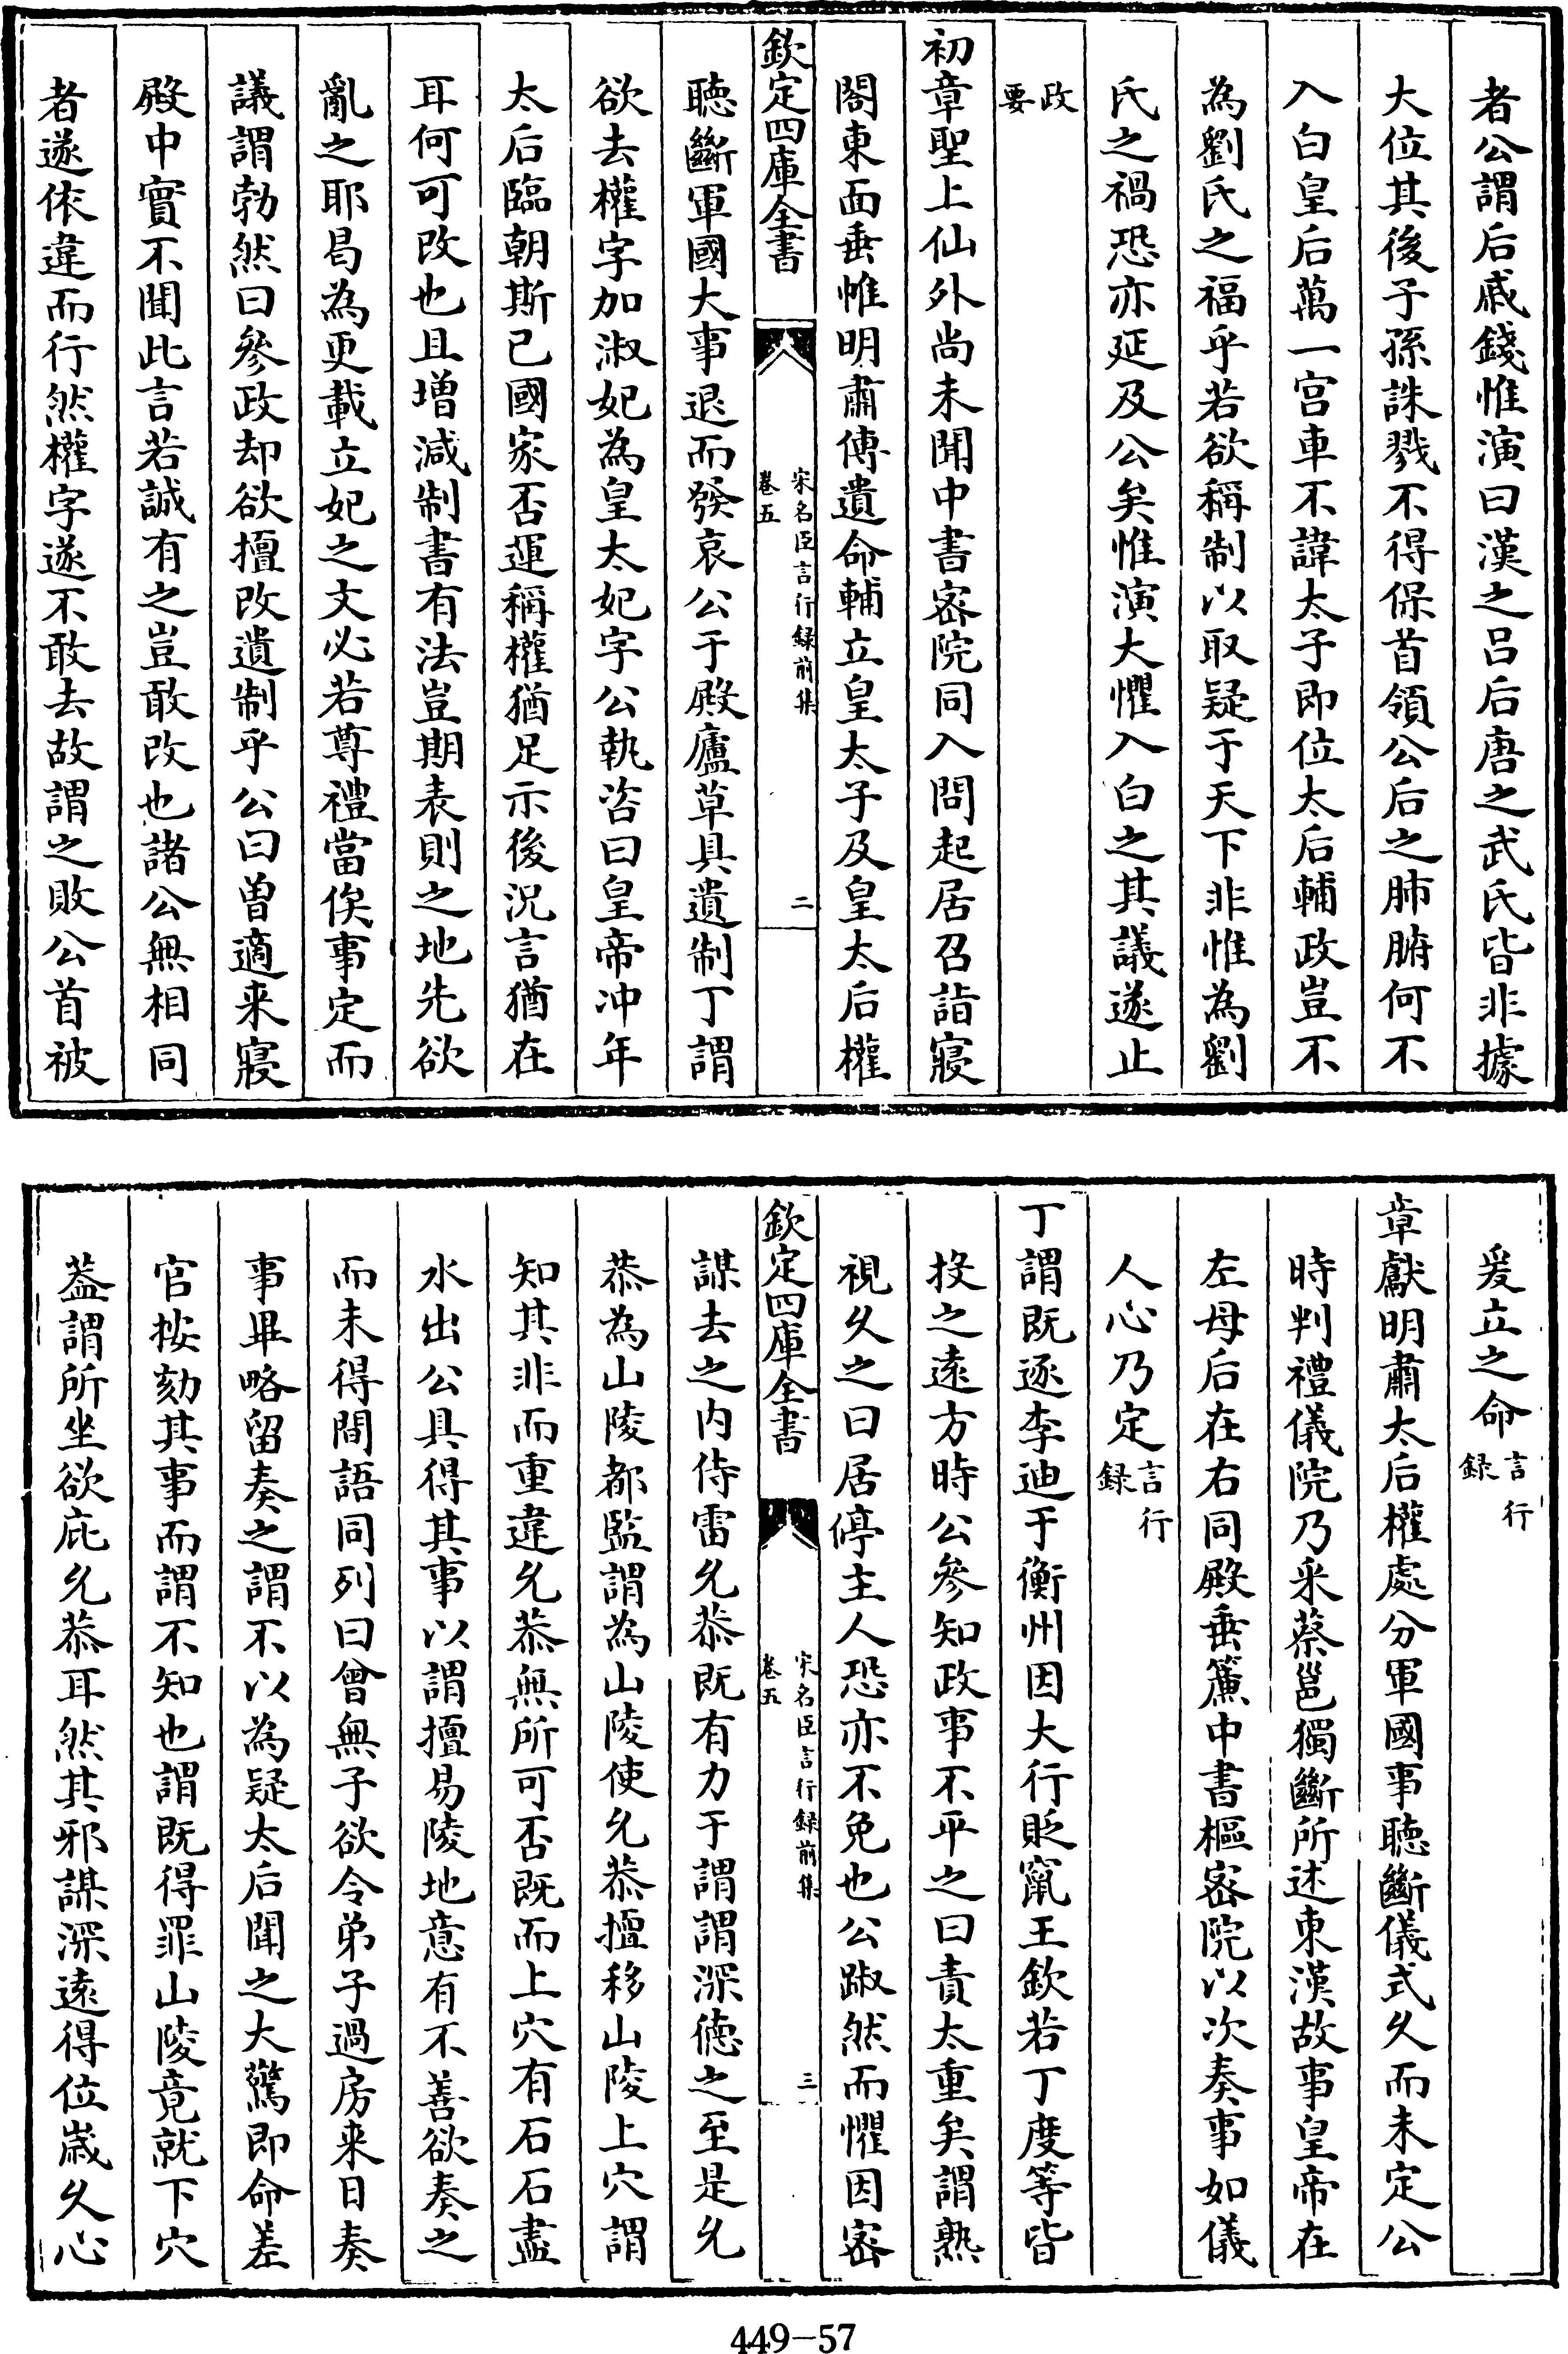 者公謂后戚錢惟演曰漢之吕后唐之武氏皆非據
大位其後子孫誅戮不得保首領公后之肺腑何不
入白皇后萬一宫車不諱太子即位太后輔政豈不
為劉氏之福乎若欲稱制以取疑于天下非惟為劉
氏之禍恐亦延及公矣惟演大懼入白之其議遂止
政要
初章聖上仙外尚未聞中書宻院同入問起居召詣寢
閤東面垂帷明肅傳遺命輔立皇太子及皇太后權
欽定四庫全書
宋名臣言行録前集
卷五
二
聽斷軍國大事退而發哀公于殿廬草具遺制丁謂
欲去權字加淑妃為皇太妃字公執咨曰皇帝冲年
太后臨朝斯已國家否運稱權猶足示後況言猶在
耳何可改也且増減制書有法豈期表則之地先欲
亂之耶曷為更載立妃之文必若尊禮當俟事定而
議謂勃然曰參政却欲擅改遺制乎公曰曽適来寢
殿中實不聞此言若誠有之豈敢改也諸公無相同
者遂依違而行然權字遂不敢去故謂之敗公首被
爰立之命言行録
章獻明肅太后權處分軍國事聽斷儀式久而未定公
時判禮儀院乃采蔡邕獨斷所述東漢故事皇帝在
左母后在右同殿垂簾中書樞宻院以次奏事如儀
人心乃定言行録
丁謂既逐李迪于衡州因大行貶竄王欽若丁度等皆
投之逺方時公參知政事不平之曰責太重矣謂熟
視久之曰居停主人恐亦不免也公踧然而懼因宻
欽定四庫全書
宋名臣言行録前集
卷五
三
謀去之内侍雷允恭既有力于謂謂深徳之至是允
恭為山陵都監謂為山陵使允恭擅移山陵上穴謂
知其非而重違允恭無所可否既而上穴有石石盡
水出公具得其事以謂擅易陵地意有不善欲奏之
而未得間語同列曰曾無子欲令弟子過房来日奏
事畢略留奏之謂不以為疑太后聞之大驚即命差
官按劾其事而謂不知也謂既得罪山陵竟就下穴
葢謂所坐欲庇允恭耳然其邪謀深逺得位嵗久心
449-57